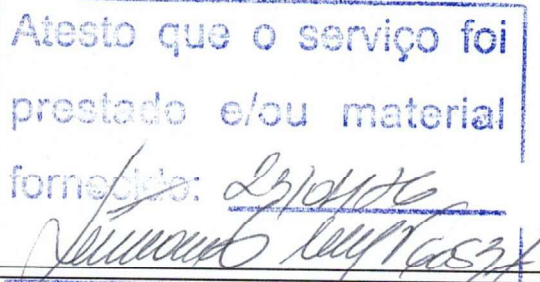 Atesto que o serviço foi
prestado e/ou material
fornecido: 23/04/26